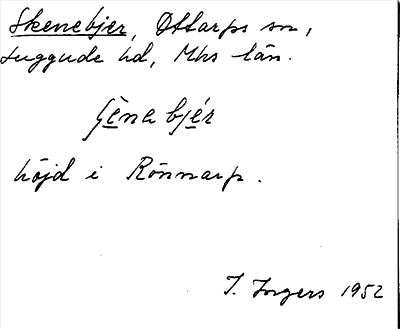 Skenebjer, Ottarps sn,
Luggude hd, Mhs län.
ʃènebjér
höjd i Rönnarp.
I. Ingers 1952